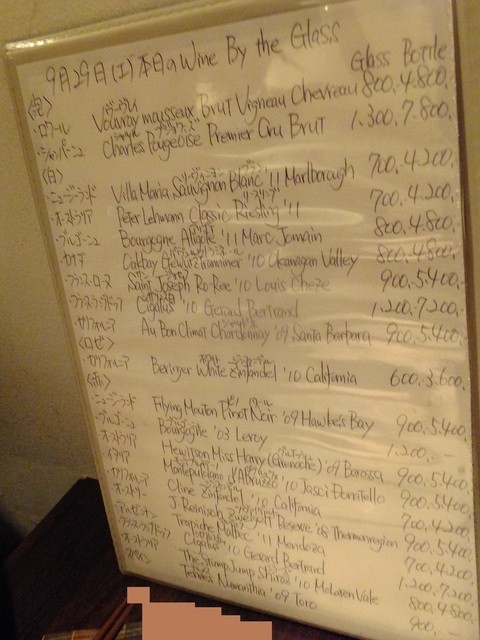 9月29日(土)本日のWine By the Glass
Glass Bottle
<泡>
・ロワール Vouvray mousseux Brut Vigneau Chevreau 800.4.800.-
・シャンパーニュ Charles Pougeoise Premier Cru Brut 1.300.7.800.-
<白>
・ニュージーランド Villa Maria Sauvignon Blanc '11 Marlborough 700.4.200.-
・オーストラリア Peter Lehmann Classic Riesling '11 700.4.200.-
・ブルゴーニュ Bourgogne Aligoté '11 Marc Jomain 800.4.800.-
・カナダ Calbay Gewürztraminer '10 Okanagan Valley 800.4.800.-
・フランス・ローヌ Saint Joseph Ro-Ree '10 Louis Cheze 900.5.400.-
Cigalus '10 Gerard Bertrand 1.200.7.200.-
・カリフォルニア Au Bon Climat Chardonnay '09 Santa Barbara 900.5.400.-
<ロゼ>
・カリフォルニア Beringer White Zinfandel '10 California 600.3.600.-
<赤>
・ニュージーランド Flying Mouton Pinot Noir '09 Hawke's Bay 900.5.400.
・ブルゴーニュ Bourgogne '03 Leroy 1.200.-
・オーストラリア Hewitson Miss Harry (Grenache) '09 Barossa 900.5.400
・イタリア Montepulciano d'Abruzzo '10 Jasci Donatello 900.5.400
・カリフォルニア Cline Zinfandel '10 California 700.4.200
・オーストリー J. Reinisch Zweigelt Reserve '08 Thermenregion 900.5.400
・アルゼンチン Trapiche Malbec '11 Mendoza 700.4.200.
Cigalus '10 Gerard Bertrand 1.200.7.200.
・オーストラリア The Stump Jump Shiraz '10 McLaren Vale 800.4.800
・スペイン Termes Numanthia '09 Toro 900.